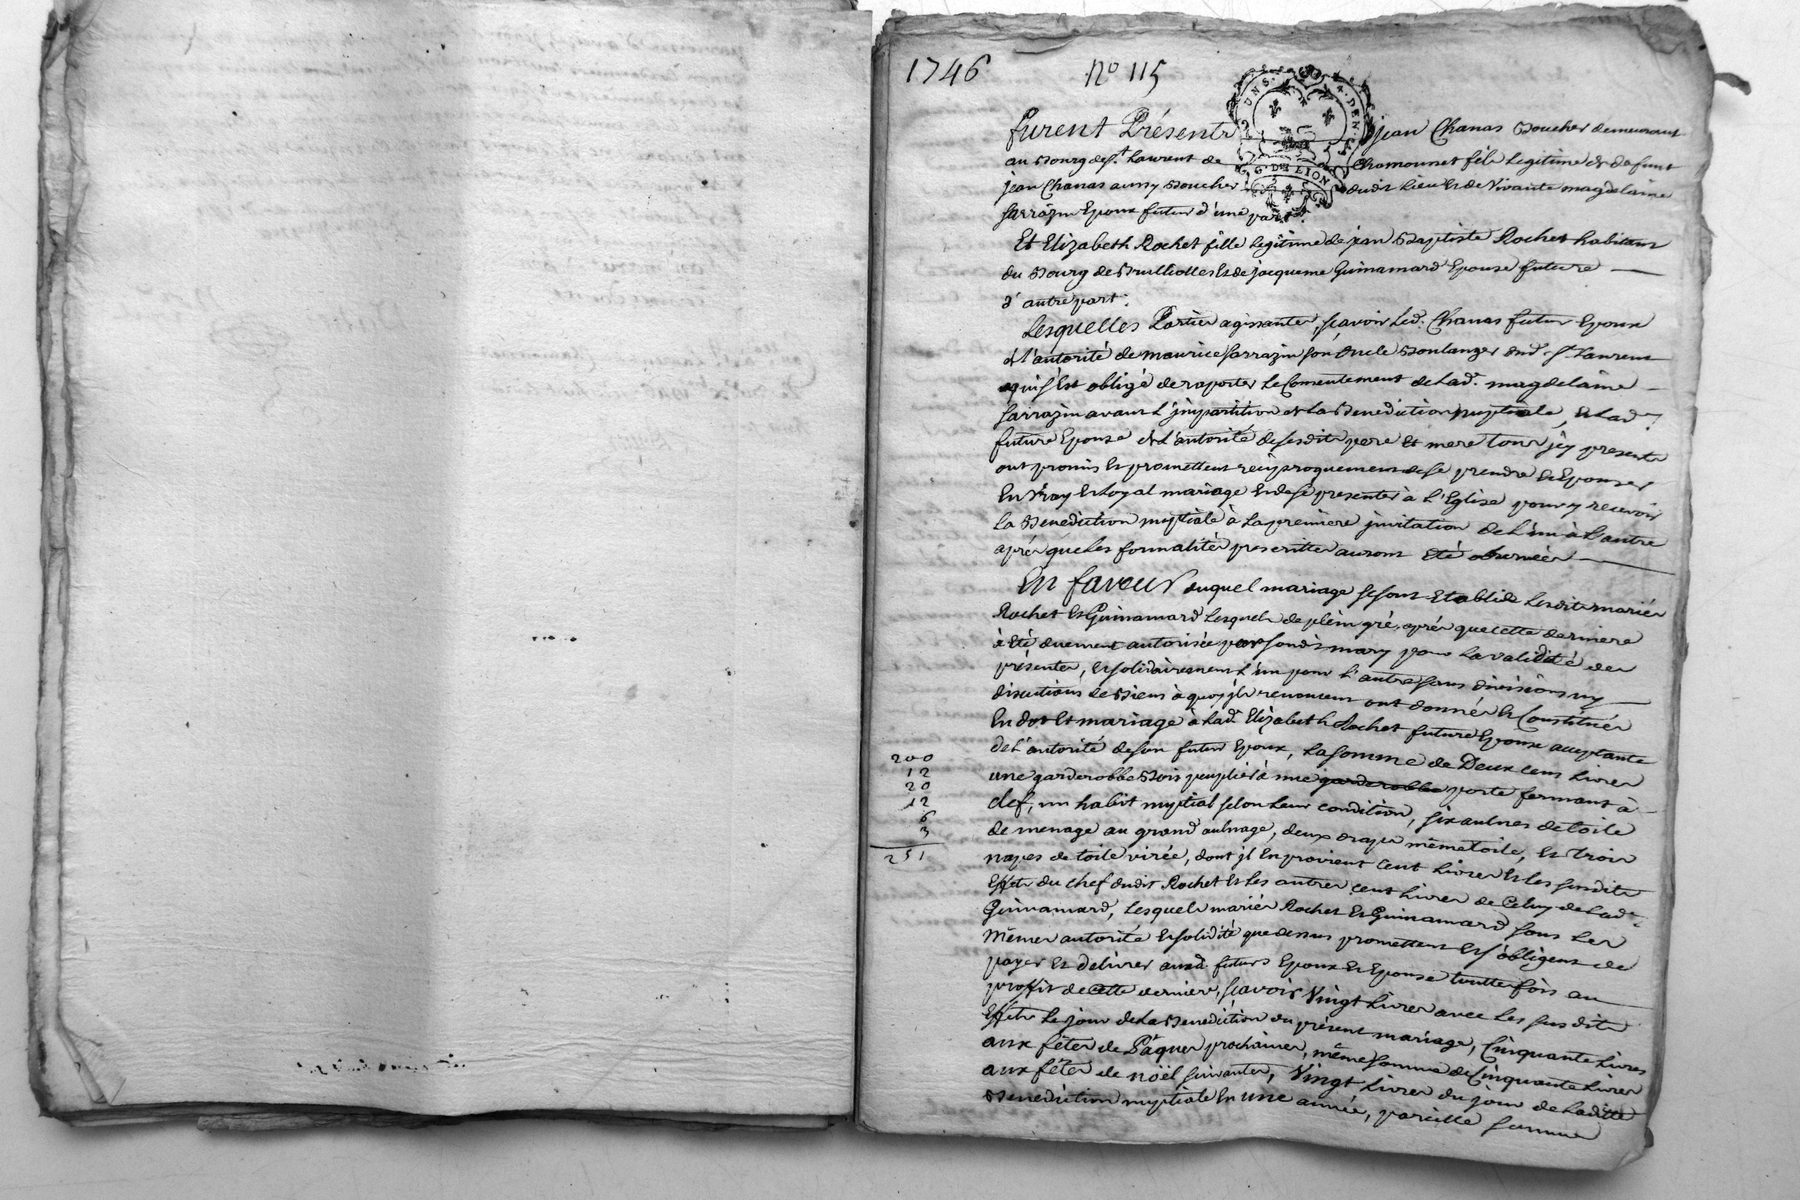 1746 No 115
furent Présents jean Chanas Boucher demeurant
au Bourg de St. Laurent de Chamounet fils legitime de defunt
jean Chanas aussy Boucher dudit Lieu et de Vivante magdelaine
Sarrazin Epoux futur d'une part.
Et Elizabeth Rochet fille legitime de jean Baptiste Rochet habitant
du Bourg de Brulliolles et de jacqueme Guinamard Epouse future
d'autre part.
Lesquelles Parties agissantes, sçavoir Led. Chanas futur Epoux
de l'autorité de maurice Sarrazin son Oncle Boulanger dud. St. Laurent
qui s'Est obligé de raporter Le Consentement de Lad. magdelaine
Sarrazin avant L'jmpartition de La Benediction nuptiale, et Lad.
future Epouse de L'autorité de sesdits pere et mere tous jcy presents
ont promis et promettent reciproquement de se prendre et Epouser
En Vray et Loyal mariage et de se presenter à L'Eglise pour y recevoir
La Benediction nuptiale à La premiere jnvitation de L'un à L'autre
après que Les formalités prescrittes auront Eté observées
En faveur duquel mariage se sont Etablis Lesdits mariés
Rochet et Guinamard Lesquels de plein gré, après que cette derniere
à Eté duement autorisée par sondit mary pour La validité des
présentes, et solidairement L'un pour L'autre sans divisions ny
discutions de Biens à quoy jls renoncent ont donné et Constitué
En dot et mariage à Lad. Elizabeth Rochet future Epouse acceptante
de L'autorité de son futur Epoux, La somme de Deux cent Livres
une garderobbe Bois peuplié à une garderobbe porte fermant à
clef, un habit nuptial selon Leur condition, six aulnes de toile
de menage au grand aulnage, deux draps même toile, et trois
napes de toile virée, dont jl En provient cent Livres et Les susdits
Effets du chef dudit Rochet et Les autres cent Livres de Celuy de Lad.
Guinamard, Lesquels mariés Rochet et Guinamard sous Les
Mêmes autorité et solidité que dessus promettent et s'obligent de
payer et delivrer auxd. futurs Epoux et Epouse toutte fois au
proffit de cette derniere, sçavoir Vingt Livres avec Les susdits
Effets Le jour de La Benediction du présent mariage, Cinquante Livres
aux fêtes de Pâques prochaines, même somme de Cinquante Livres
aux fêtes de noël suivantes, Vingt Livres du jour de Laditte
Benediction nuptiale En une année, pareille somme
200
12
20
12
6
3
251
G. DE LION